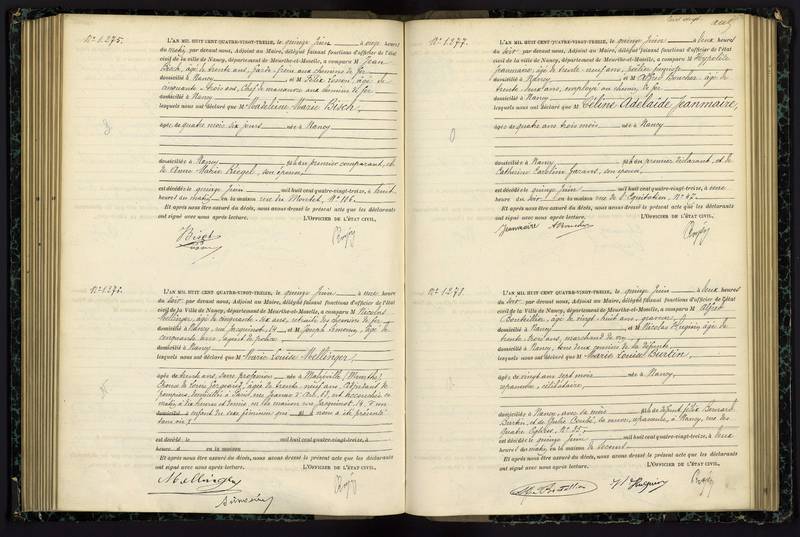 N° 1.275.
L'AN MIL HUIT CENT QUATRE-VINGT-TREIZE, le quinze Juin à onze heures
du matin, par devant nous, Adjoint au Maire, délégué faisant fonctions d'officier de l'état
civil de la ville de Nancy, département de Meurthe-et-Moselle, a comparu M Jean
Bisch, âgé de trente ans, garde-frein aux chemins de fer
domicilié à Nancy et M Félix âgé de
cinquante-trois ans, chef de manœuvre aux chemins de fer
domicilié à Nancy
lesquels nous ont déclaré que M Madeleine Marie Bisch,
âgée de quatre mois six jours née à Nancy
domiciliée à Nancy fille du premier comparant, et
de Anne Marie Riegel, son épouse
est décédée le quinze Juin mil huit cent quatre-vingt-treize, à huit
heures du matin en la maison rue du Montet, N° 116.
Et après nous être assuré du décès, nous avons dressé le présent acte que les déclarants
ont signé avec nous après lecture. L'OFFICIER DE L'ÉTAT CIVIL,
Bisch
N° 1.276.
L'AN MIL HUIT CENT QUATRE-VINGT-TREIZE, le quinze Juin à une heure
du soir par devant nous, Adjoint au Maire, délégué faisant fonctions d'officier de l'état
civil de la ville de Nancy, département de Meurthe-et-Moselle, a comparu M Nicolas
Mellinger, âgé de soixante-six ans, retraité des chemins de fer
domicilié à Nancy, rue Jacquinot, 14 et M Joseph Simonin, âgé de
cinquante ans, agent de police
domicilié à Nancy
lesquels nous ont déclaré que M Marie Louise Mellinger,
âgée de trente ans, sans profession née à
de Louis âgé de trente-neuf ans, adjudant de
pompiers, domicilié à Paris, rue Jeanne d'Arc, est accouchée ce
matin, à six heures et demie en la maison rue Jacquinot, 14, d'un
enfant de sexe féminin qui nous a été présenté
sans vie.
est décédé le mil huit cent quatre-vingt-treize, à
heure d en la maison
Et après nous être assuré du décès, nous avons dressé le présent acte que les déclarants
ont signé avec nous après lecture. L'OFFICIER DE L'ÉTAT CIVIL,
Mellinger
Simonin
N° 1.277.
L'AN MIL HUIT CENT QUATRE-VINGT-TREIZE, le quinze Juin à deux heures
du soir par devant nous, Adjoint au Maire, délégué faisant fonctions d'officier de l'état
civil de la ville de Nancy, département de Meurthe-et-Moselle, a comparu M Hypolite
Jeanmaire, âgé de trente-neuf ans,
domicilié à Nancy et M Alfred âgé de
trente-deux ans, employé au chemin de fer
domicilié à Nancy
lesquels nous ont déclaré que M Céline Adelaïde Jeanmaire,
âgée de quatre ans trois mois née à Nancy
domiciliée à Nancy fille du premier déclarant, et de
Catherine Caroline son épouse,
est décédée le quinze Juin mil huit cent quatre-vingt-treize, à une
heure du soir en la maison rue de l'Equitation, N° 45.
Et après nous être assuré du décès, nous avons dressé le présent acte que les déclarants
ont signé avec nous après lecture. L'OFFICIER DE L'ÉTAT CIVIL,
Jeanmaire
N° 1.278.
L'AN MIL HUIT CENT QUATRE-VINGT-TREIZE, le quinze Juin à deux heures
du soir par devant nous, Adjoint au Maire, délégué faisant fonctions d'officier de l'état
civil de la ville de Nancy, département de Meurthe-et-Moselle, a comparu M Alfred
âgé de vingt-huit ans,
domicilié à Nancy et M Nicolas Huguin, âgé de
trente-trois ans, marchand de vin
domicilié à Nancy, tous deux cousins de la défunte
lesquels nous ont déclaré que M Marie Louise Burtin,
âgée de vingt ans sept mois née à Nancy,
célibataire,
domiciliée à Nancy, avec sa mère fille de défunt Félix Bernard
Burtin, et de Julie sa veuve, à Nancy, rue des
Quatre Eglises, N° 35.
est décédée le quinze Juin mil huit cent quatre-vingt-treize, à deux
heures du matin en la maison de secours
Et après nous être assuré du décès, nous avons dressé le présent acte que les déclarants
ont signé avec nous après lecture. L'OFFICIER DE L'ÉTAT CIVIL,